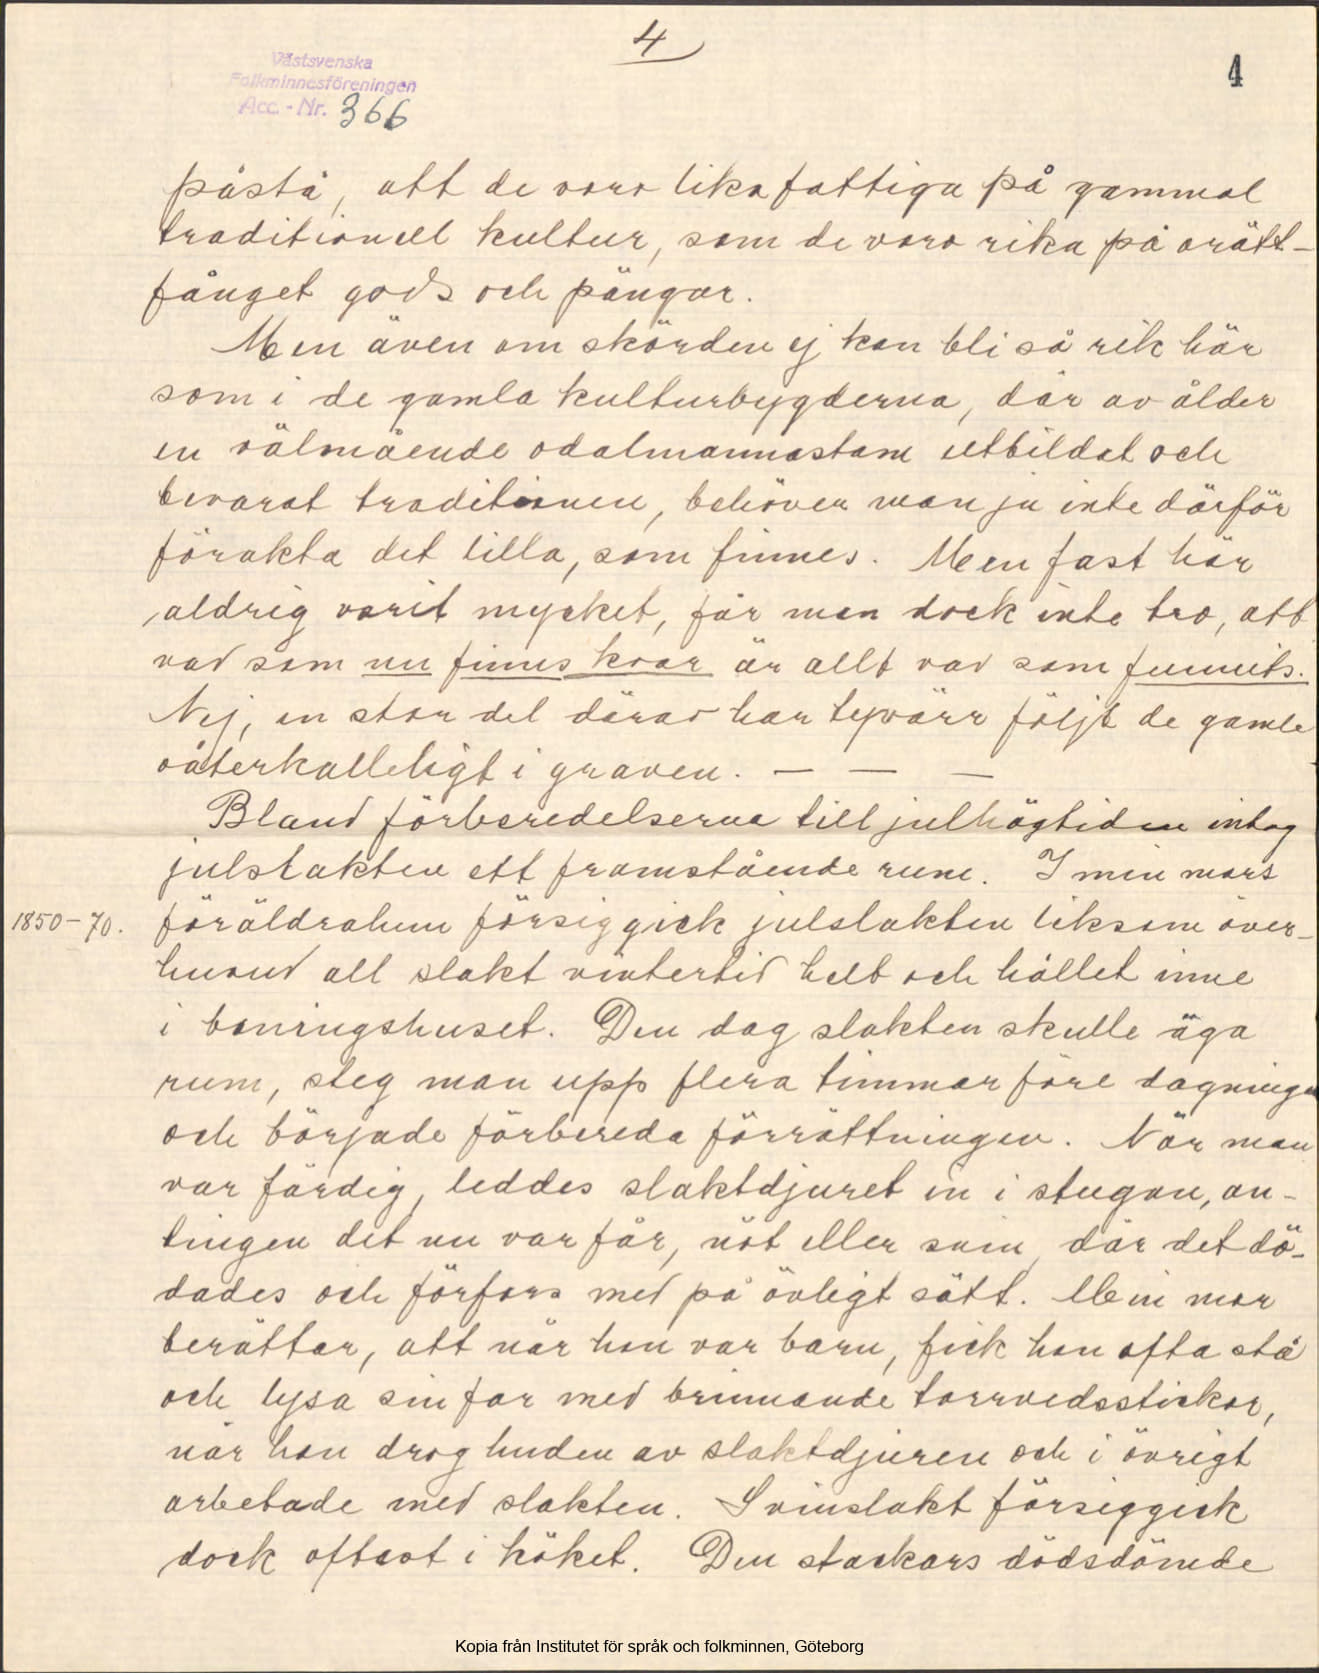 4
4
Västsvenska
Folkminnesföreningen
Acc. - Nr. 366
påstå, att de voro lika fattiga på gammal
traditionell kultur, som de voro rika på orätt-
fånget gods och pängar.
Men även om skörden ej kan bli så rik här
som i de gamla kulturbygderna, där av ålder
en välmående odalmannastam utbildat och
bevarat traditionen, behöver man ju inte därför
förakta det lilla, som finnes. Men fast här
aldrig varit mycket, får man dock inte tro, att
vad som nu finns kvar är allt vad som funnits.
Nej, en stor del därav har tyvärr följt de gamle
oåterkalleligt i graven. — — —
Bland förberedelserna till julhögtiden intog
julslakten ett framstående rum. I min mors
1850-70. föräldrahem försiggick julslakten liksom över-
huvud all slakt vintertid helt och hållet inne
i boningshuset. Den dag slakten skulle äga
rum, steg man upp flera timmar före dagningen
och började förbereda förrättningen. När man
var färdig, leddes slaktdjuret in i stugan, an-
tingen det nu var får, nöt eller svin, där det dö-
dades och förfors med på övligt sätt. Min mor
berättar, att när hon var barn, fick hon ofta stå
och lysa sin far med brinnande torrvedsstickor,
när han drog huden av slaktdjuren och i övrigt
arbetade med slakten. Svinslakt försiggick
dock oftast i köket. Den stackars dödsdömde
Kopia från Institutet för språk och folkminnen, Göteborg